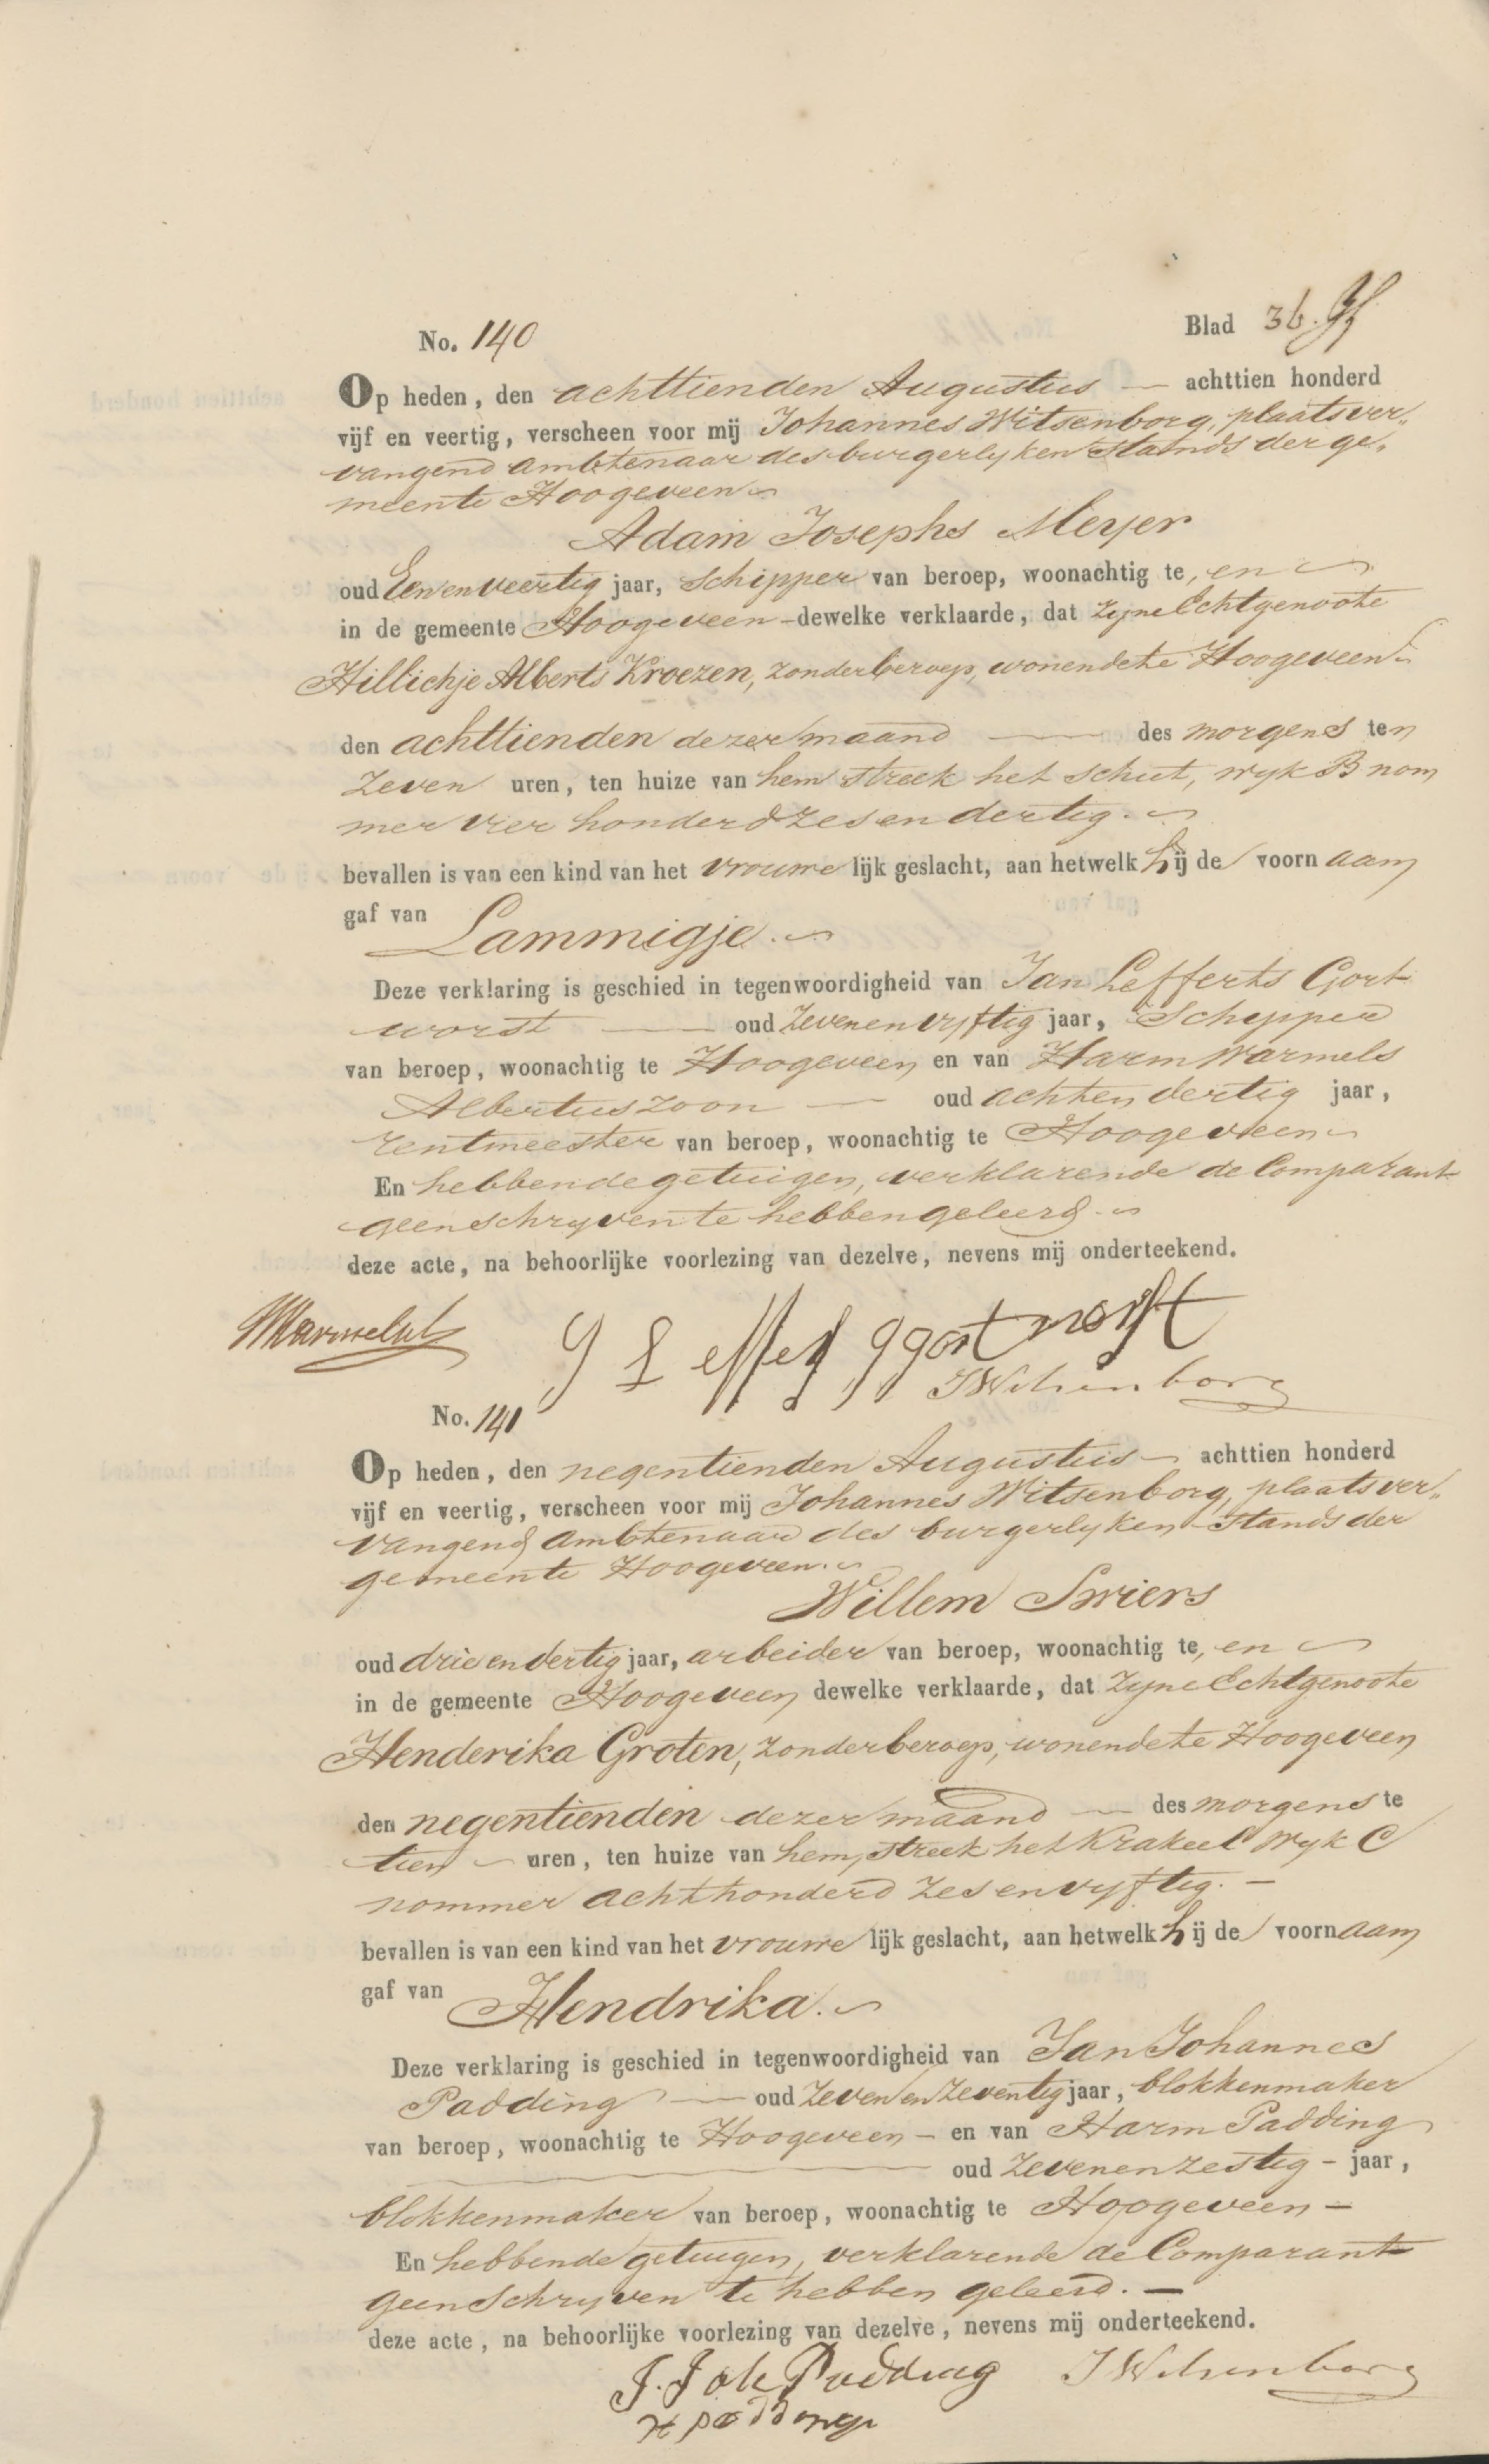 No. 140
Blad 36.
Op heden, den achttienden Augustus — achttien honderd
vijf en veertig, verscheen voor mij Johannes Witsenborg, plaatsver„
vangend ambtenaar des burgerlyken Stands der ge„
meente Hoogeveen
Adam Josephs Meyer
oud Eenenveertig jaar, Schipper van beroep, woonachtig te, en
in de gemeente Hoogeveen - dewelke verklaarde, dat zyne Echtgenoote
Hillichje Alberts Kroezen, zonder beroep, wonende te Hoogeveen
den achttienden dezer maand — des morgens ten
zeven uren, ten huize van hem streek het schut, wyk B nom
mer vier honderd zes en dertig.
bevallen is van een kind van het vrouwelijk geslacht, aan hetwelk hij de voornaam
gaf van Lammigje.
Deze verklaring is geschied in tegenwoordigheid van Jan Lefferts Gort
worst — oud zevenenvyftig jaar, Schipper
van beroep, woonachtig te Hoogeveen en van Harm Warmels
Albertuszoon — oud achtendertig jaar,
rentmeester van beroep, woonachtig te Hoogeveen
En hebbende getuigen, verklarende de Comparant
geen schryven te hebben geleerd.
deze acte, na behoorlijke voorlezing van dezelve, nevens mij onderteekend.
HWarmels
J Leffers ggortworst
JWitsenborg
No. 141
Op heden, den negentienden Augustus — achttien honderd
vijf en veertig, verscheen voor mij Johannes Witsenborg, plaatsver„
vangend ambtenaar des burgerlyken Stands der
gemeente Hoogeveen.
Willem Swiers
oud drieendertig jaar, arbeider van beroep, woonachtig te, en
in de gemeente Hoogeveen dewelke verklaarde, dat zyne Echtgenoote
Henderika Groten, zonder beroep, wonende te Hoogeveen
den negentienden dezer maand — des morgens te
tien uren, ten huize van hem, streek het Krakeel wyk C
nommer achthonderd zesenvyftig. —
bevallen is van een kind van het vrouwelijk geslacht, aan hetwelk hij de voornaam
gaf van Hendrika.
Deze verklaring is geschied in tegenwoordigheid van Jan Johannes
Padding — oud zevenenzeventig jaar, blokkenmaker
van beroep, woonachtig te Hoogeveen — en van Harm Padding
— oud zevenenzestig - jaar,
blokkenmaker van beroep, woonachtig te Hoogeveen —
En hebbende getuigen, verklarende de Comparant
geen schryven te hebben geleerd. —
deze acte, na behoorlijke voorlezing van dezelve, nevens mij onderteekend.
J. Joh Padding JWitsenborg
H padding